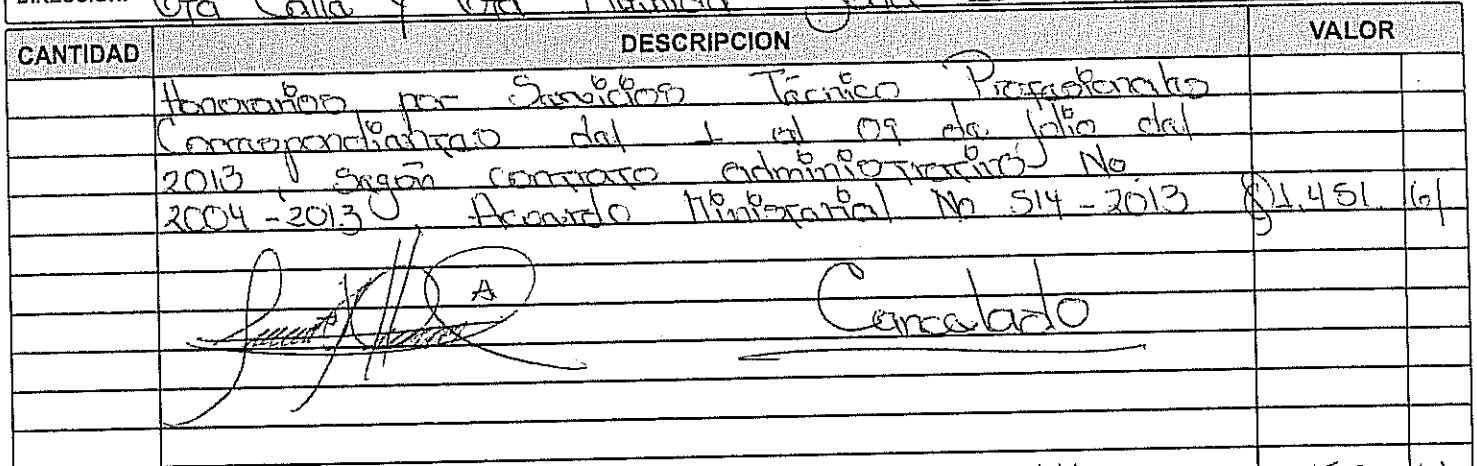 DIRECCION: 6ta Calle y 6ta
CANTIDAD DESCRIPCION VALOR
Honorarios por Servicios Técnico Profesionales
Correspondientes del 1 al 09 de Julio del
2013, Según contrato administrativo No
2004-2013, Acuerdo Ministerial No 514-2013 Q1,451 61
A
Cancelado